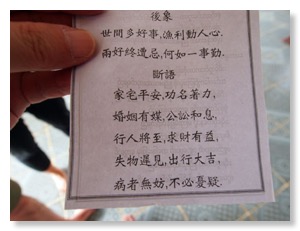 後象
世間多好事,漁利動人心.
兩好終遭忌,何如一事勤.
斷語
家宅平安,功名著力,
婚姻有媒,公訟和息,
行人將至,求財有益,
失物遲見,出行大吉,
病者無妨,不必憂疑.